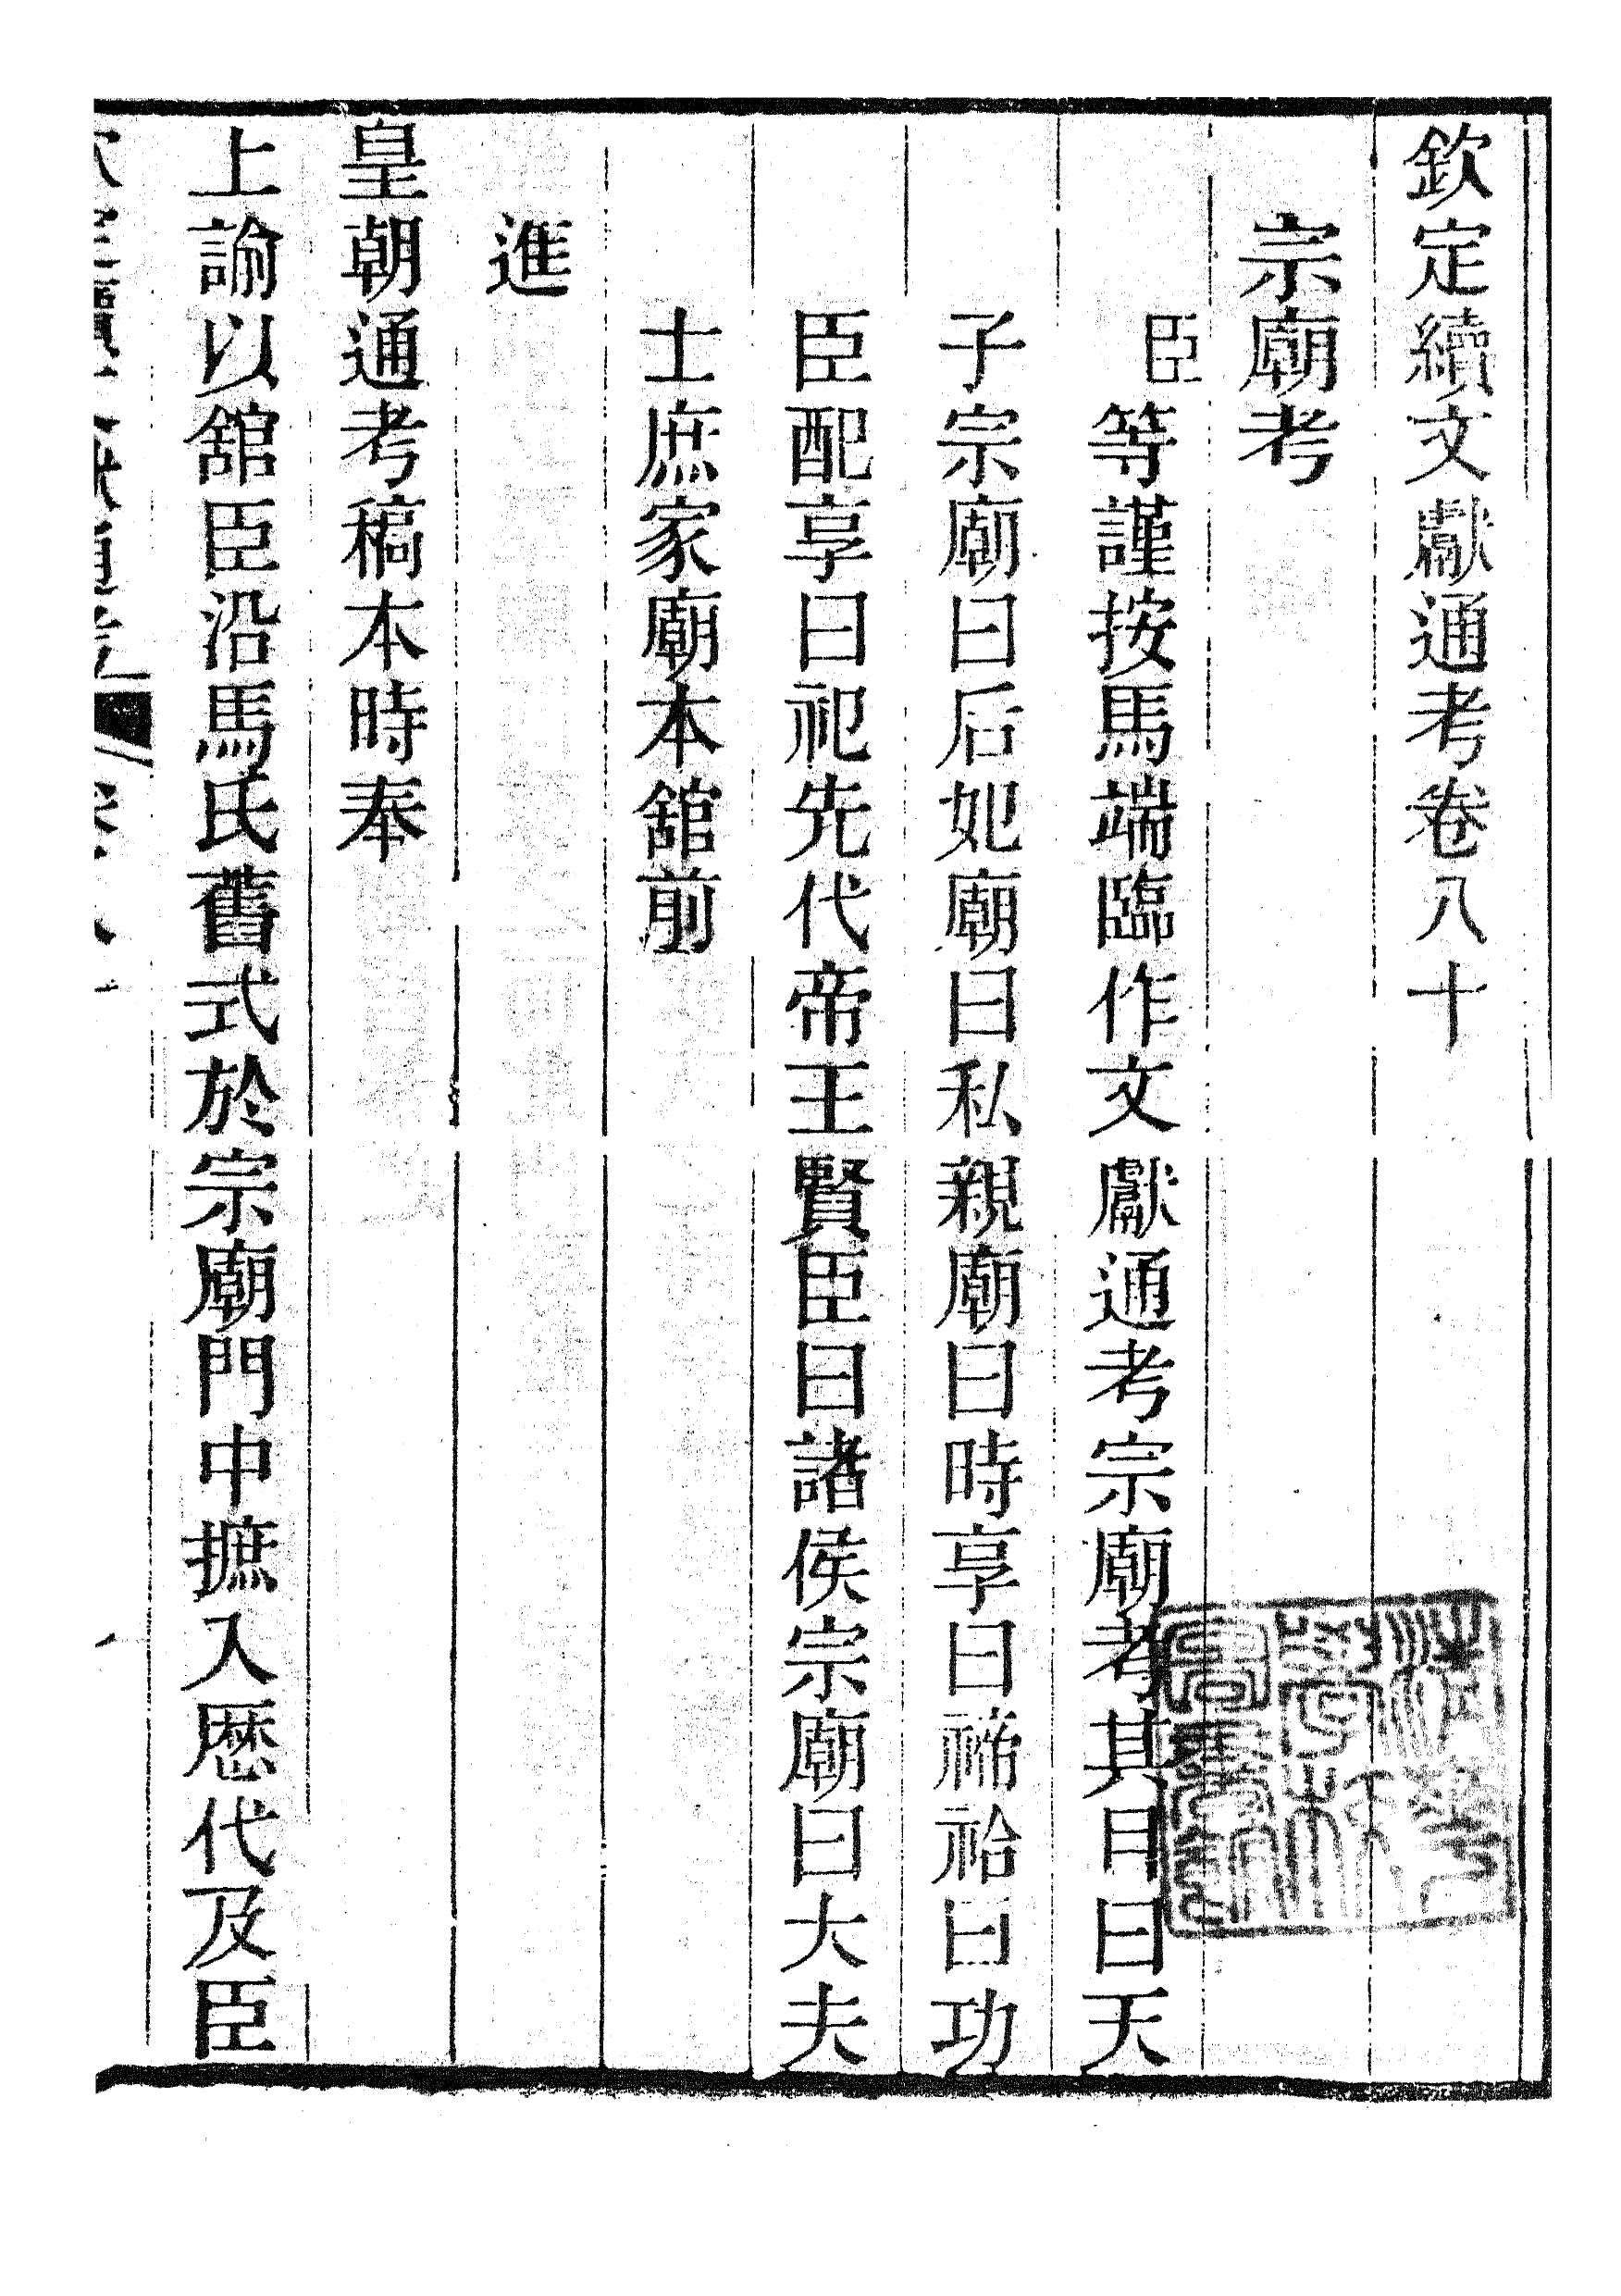 欽定續文獻通考卷八十
宗廟考
臣等謹按馬端臨作文獻通考宗廟考其目曰天
子宗廟曰后妃廟曰私親廟曰時享曰禘祫曰功
臣配享曰祀先代帝王賢臣曰諸侯宗廟曰大夫
士庶家廟本舘前
進
皇朝通考稿本時奉
上諭以舘臣沿馬氏舊式於宗廟門中摭入歷代及臣